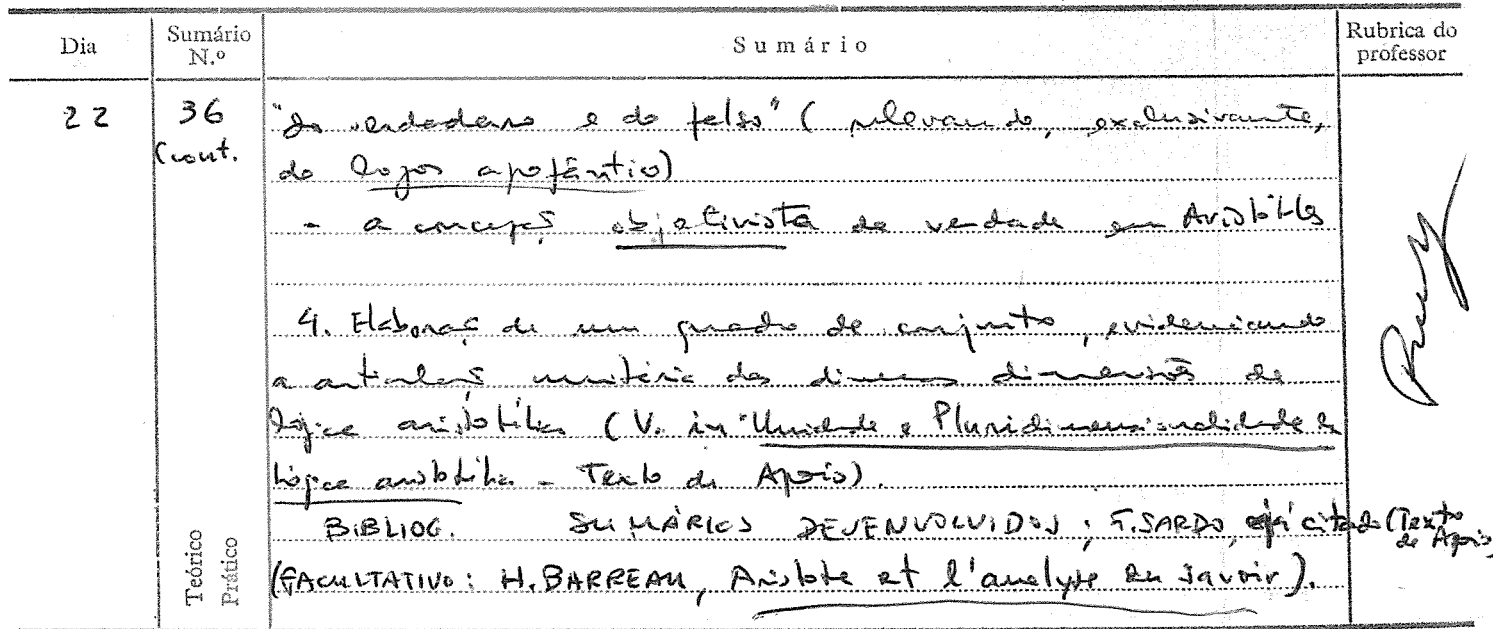 Dia Sumário N.º Sumário Rubrica do professor
22 36 "do verdadeiro e do falso" (relevando, exclusivamente,
(cont. do logos apofântico)
- a concepç objetivista de verdade em Aristóteles
4. Elaboraç de um quadro de conjunto, evidenciando
a articulaç unitária das diversas dimensões da
lógica aristotélica (V. in "Unidade e Pluridimensionalidade da
Lógica aristotélica - Texto de Apoio).
BIBLIOG. SUMÁRIOS DESENVOLVIDOS; F. SARDO, já citado (Texto de Apoio)
(FACULTATIVO: H. BARREAU, Aristote et l'analyse du savoir).
Teórico
Prático